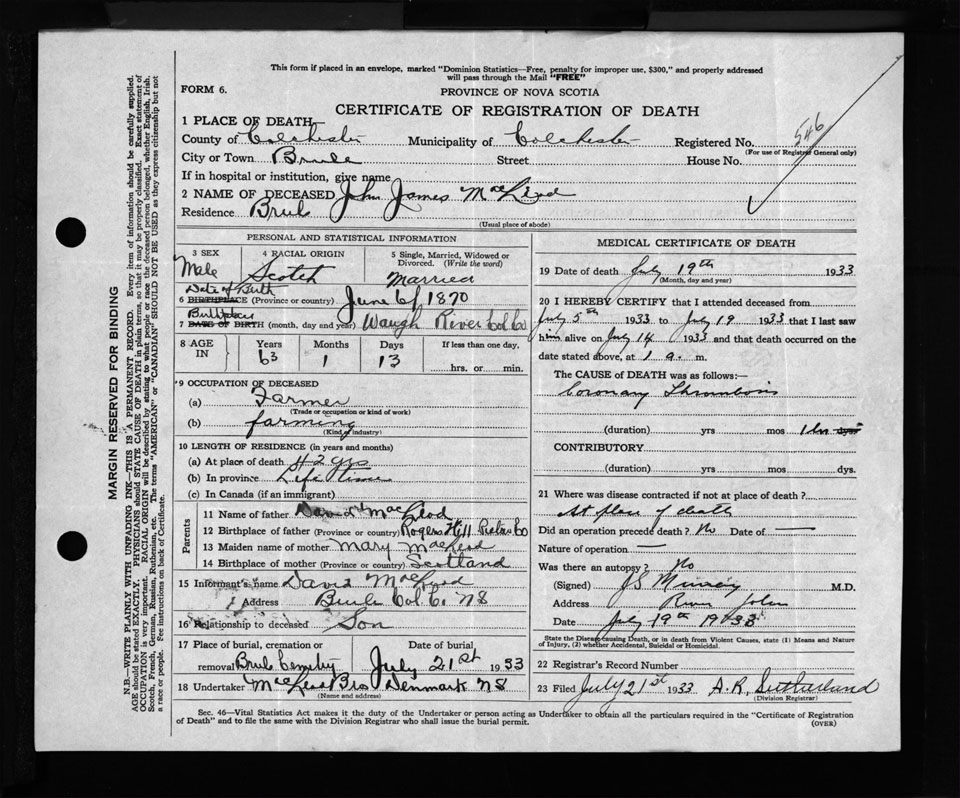 This form if placed in an envelope, marked "Dominion Statistics—Free, penalty for improper use, $300," and properly addressed
will pass through the Mail "FREE"
FORM 6.
PROVINCE OF NOVA SCOTIA
CERTIFICATE OF REGISTRATION OF DEATH
1 PLACE OF DEATH
County of Colchester Municipality of Colchester Registered No. 546
(For use of Registrar General only)
City or Town Brule Street House No.
If in hospital or institution, give name
2 NAME OF DECEASED John James MacLeod
Residence Brule
(Usual place of abode)
PERSONAL AND STATISTICAL INFORMATION
3 SEX 4 RACIAL ORIGIN 5 Single, Married, Widowed or
Divorced. (Write the word)
Male Scotch Married
Date of Birth
6 BIRTHPLACE (Province or country) June 6/ 1870
Birthplace
7 DATE OF BIRTH (month, day and year) Waugh River Col Co
8 AGE IN Years Months Days If less than one day,
63 1 13 hrs. or min.
9 OCCUPATION OF DECEASED
(a) Farmer
(Trade or occupation or kind of work)
(b) farming
(Kind of industry)
10 LENGTH OF RESIDENCE (in years and months)
(a) At place of death 42 yrs
(b) In province Life time
(c) In Canada (if an immigrant)
Parents
11 Name of father David MacLeod
12 Birthplace of father (Province or country) Rogers Hill Pictou Co
13 Maiden name of mother Mary MacLeod
14 Birthplace of mother (Province or country) Scotland
15 Informant's name David MacLeod
Address Brule Col. C. NS
16 Relationship to deceased Son
17 Place of burial, cremation or Date of burial
removal Brule Cemetry July 21st 1933
18 Undertaker MacLeod Bros Denmark NS
(Name and address)
MEDICAL CERTIFICATE OF DEATH
19 Date of death July 19th 1933
(Month, day and year)
20 I HEREBY CERTIFY that I attended deceased from
July 5th 1933 to July 19 1933 that I last saw
him alive on July 14 1933 and that death occurred on the
date stated above, at 1 a. m.
The CAUSE of DEATH was as follows:—
Coronary Thrombosis
(duration) yrs mos 1 hr dys
CONTRIBUTORY
(duration) yrs mos dys.
21 Where was disease contracted if not at place of death?
At place of death
Did an operation precede death? No Date of —
Nature of operation —
Was there an autopsy? No
(Signed) J S Murray M.D.
Address River John
Date July 19th 1933
State the Disease causing Death, or in death from Violent Causes, state (1) Means and Nature
of Injury, (2) whether Accidental, Suicidal or Homicidal.
22 Registrar's Record Number
23 Filed July 21st 1933 A. R. Sutherland
(Division Registrar)
Sec. 46—Vital Statistics Act makes it the duty of the Undertaker or person acting as Undertaker to obtain all the particulars required in the "Certificate of Registration
of Death" and to file the same with the Division Registrar who shall issue the burial permit.
(OVER)
MARGIN RESERVED FOR BINDING
N.B.—WRITE PLAINLY WITH UNFADING INK—THIS IS A PERMANENT RECORD. Every item of information should be carefully supplied.
AGE should be stated EXACTLY. PHYSICIANS should STATE CAUSE OF DEATH in plain terms, so that it may be properly classified. Exact statement of
OCCUPATION is very important. RACIAL ORIGIN will be described by stating to what people or race the deceased person belonged, whether English, Irish,
Scotch, French, German, Russian, Ruthenian, etc. The terms "AMERICAN" or "CANADIAN" SHOULD NOT BE USED as they express citizenship but not
a race or people. See instructions on back of Certificate.